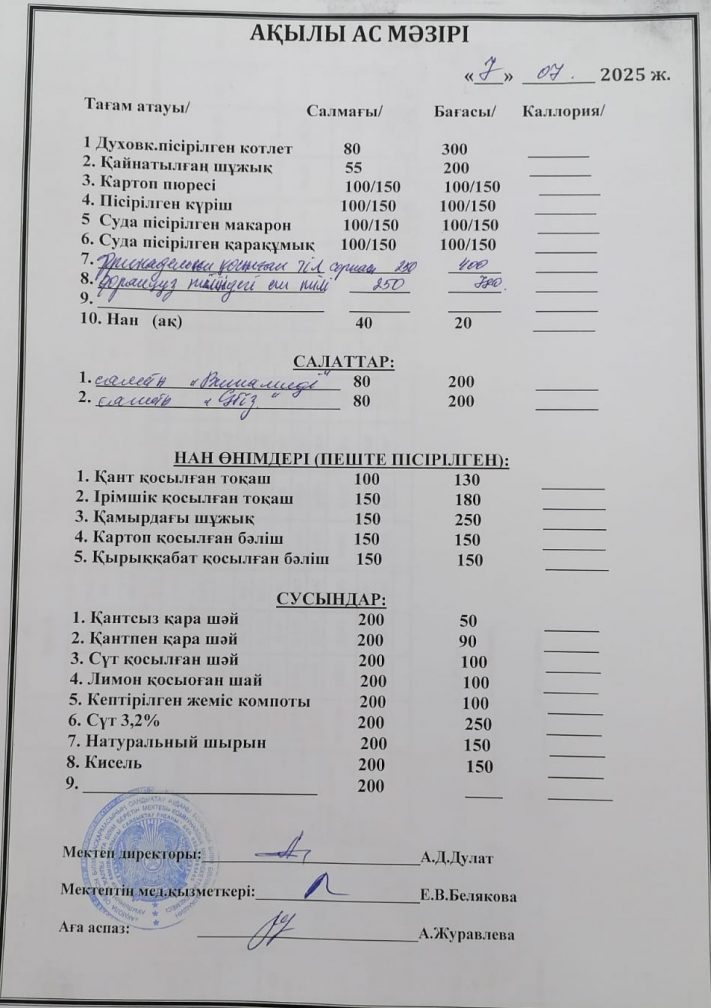 АҚЫЛЫ АС МӘЗІРІ
«7» 07. 2025 ж.
Тағам атауы/ Салмағы/ Бағасы/ Каллория/
1 Духовк.пісірілген котлет 80 300
2. Қайнатылғаң шұжық 55 200
3. Картоп пюресі 100/150 100/150
4. Пісірілген күріш 100/150 100/150
5 Суда пісірілген макарон 100/150 100/150
6. Суда пісірілген қарақұмық 100/150 100/150
7. қосылған 250 400
8. 250
9.
10. Нан (ақ) 40 20
САЛАТТАР:
1. салат 80 200
2. салат 80 200
НАН ӨНІМДЕРІ (ПЕШТЕ ПІСІРІЛГЕН):
1. Қант қосылған тоқаш 100 130
2. Ірімшік қосылған тоқаш 150 180
3. Қамырдағы шұжық 150 250
4. Картоп қосылған бәліш 150 150
5. Қырыққабат қосылған бәліш 150 150
СУСЫНДАР:
1. Қантсыз қара шәй 200 50
2. Қантпен қара шәй 200 90
3. Сүт қосылған шәй 200 100
4. Лимон қосыоған шай 200 100
5. Кептірілген жеміс компоты 200 100
6. Сүт 3,2% 200 250
7. Натуральный шырын 200 150
8. Кисель 200 150
9. 200
Мектеп директоры: А.Д.Дулат
Мектептің мед.қызметкері: Е.В.Белякова
Аға аспаз: А.Журавлева